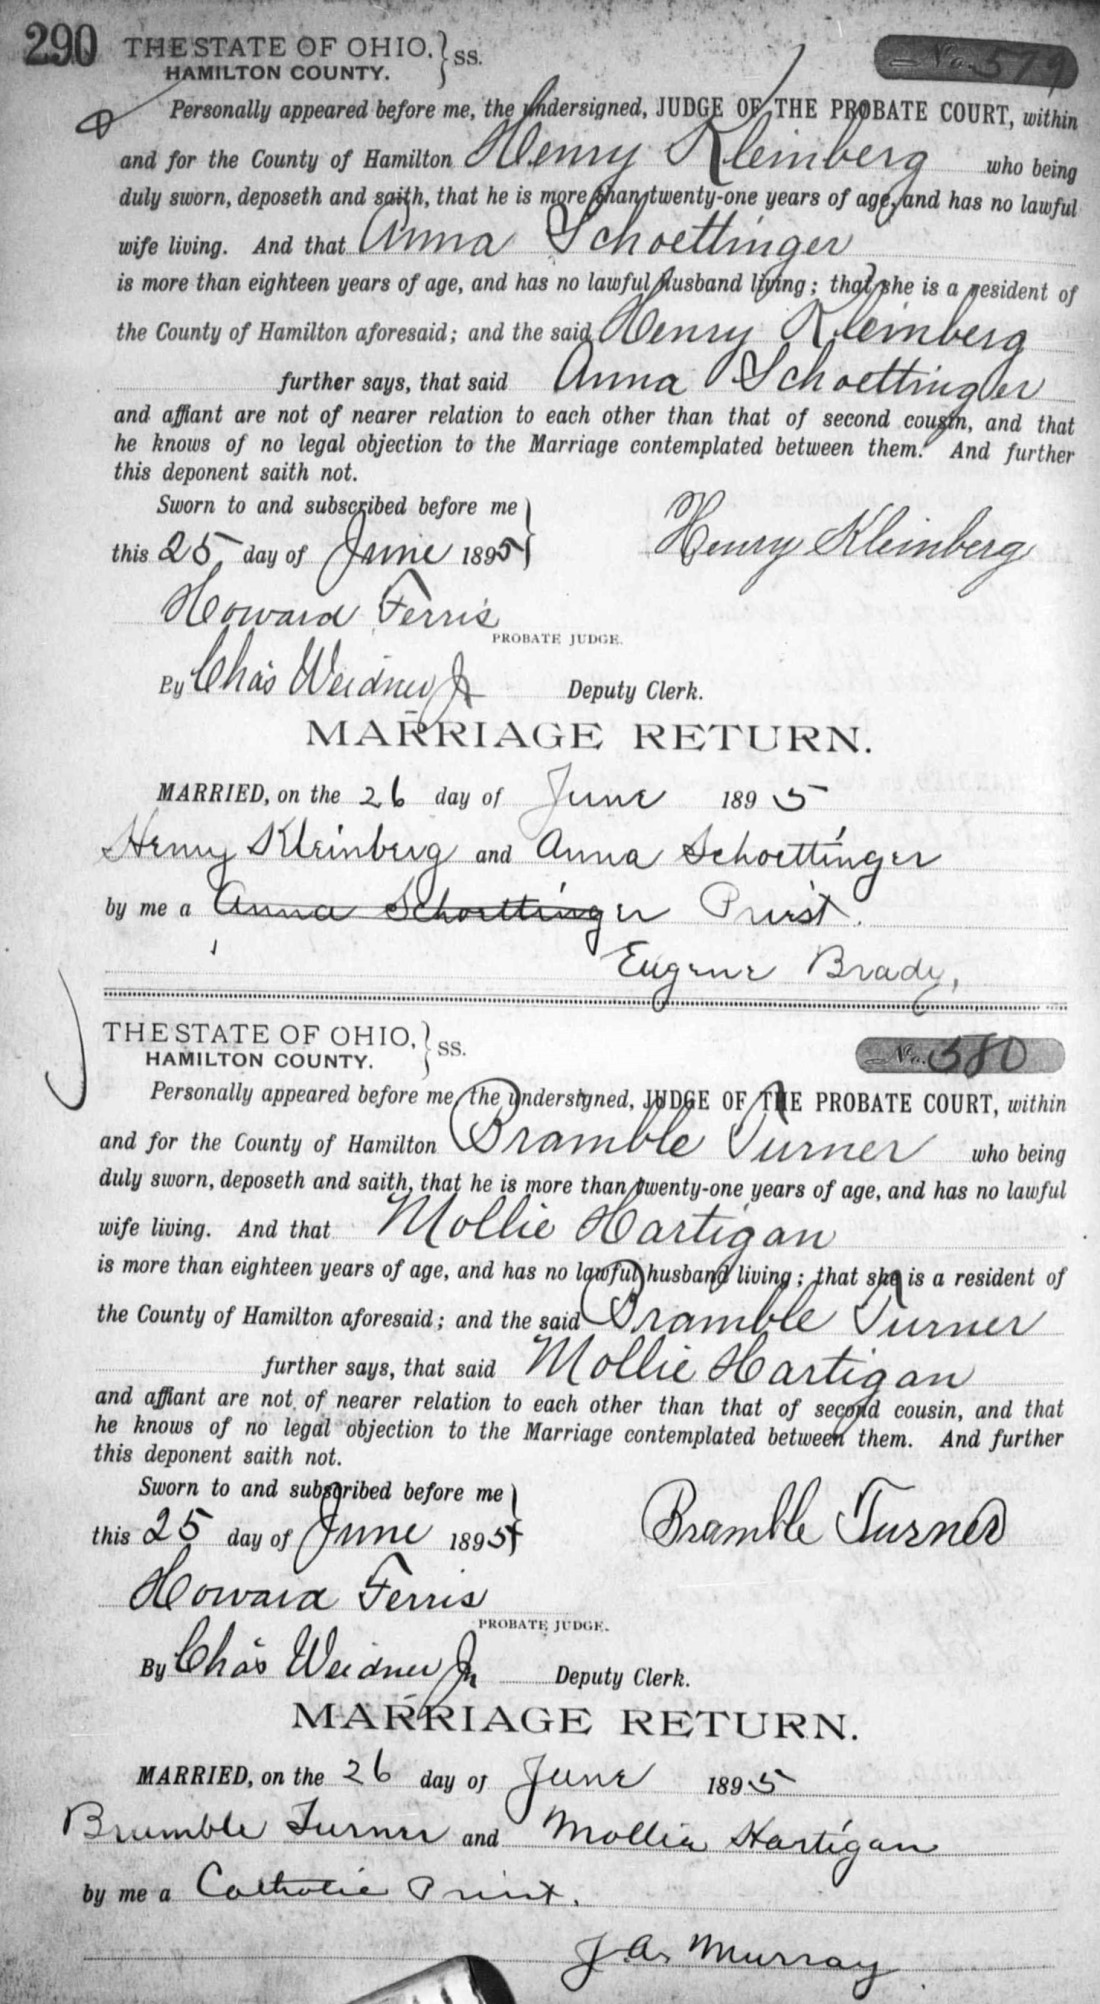 290 THE STATE OF OHIO, } SS. No. 579
HAMILTON COUNTY.
Personally appeared before me, the undersigned, JUDGE OF THE PROBATE COURT, within
and for the County of Hamilton Henry Kleinberg who being
duly sworn, deposeth and saith, that he is more than twenty-one years of age, and has no lawful
wife living. And that Anna Schoettinger
is more than eighteen years of age, and has no lawful husband living; that she is a resident of
the County of Hamilton aforesaid; and the said Henry Kleinberg
further says, that said Anna Schoettinger
and affiant are not of nearer relation to each other than that of second cousin, and that
he knows of no legal objection to the Marriage contemplated between them. And further
this deponent saith not.
Sworn to and subscribed before me }
this 25 day of June 1895 Henry Kleinberg
Howard Ferris
PROBATE JUDGE.
By Chas Weidner Jr Deputy Clerk.
MARRIAGE RETURN.
MARRIED, on the 26 day of June 1895
Henry Kleinberg and Anna Schoettinger
by me a Anna Schoettinger Priest.
Eugene Brady,
THE STATE OF OHIO, } SS. No. 580
HAMILTON COUNTY.
Personally appeared before me, the undersigned, JUDGE OF THE PROBATE COURT, within
and for the County of Hamilton Bramble Turner who being
duly sworn, deposeth and saith, that he is more than twenty-one years of age, and has no lawful
wife living. And that Mollie Hartigan
is more than eighteen years of age, and has no lawful husband living; that she is a resident of
the County of Hamilton aforesaid; and the said Bramble Turner
further says, that said Mollie Hartigan
and affiant are not of nearer relation to each other than that of second cousin, and that
he knows of no legal objection to the Marriage contemplated between them. And further
this deponent saith not.
Sworn to and subscribed before me }
this 25 day of June 1895 Bramble Turner
Howard Ferris
PROBATE JUDGE.
By Chas Weidner Jr Deputy Clerk.
MARRIAGE RETURN.
MARRIED, on the 26 day of June 1895
Brumble Turner and Mollie Hartigan
by me a Catholic Priest.
J. A. Murray